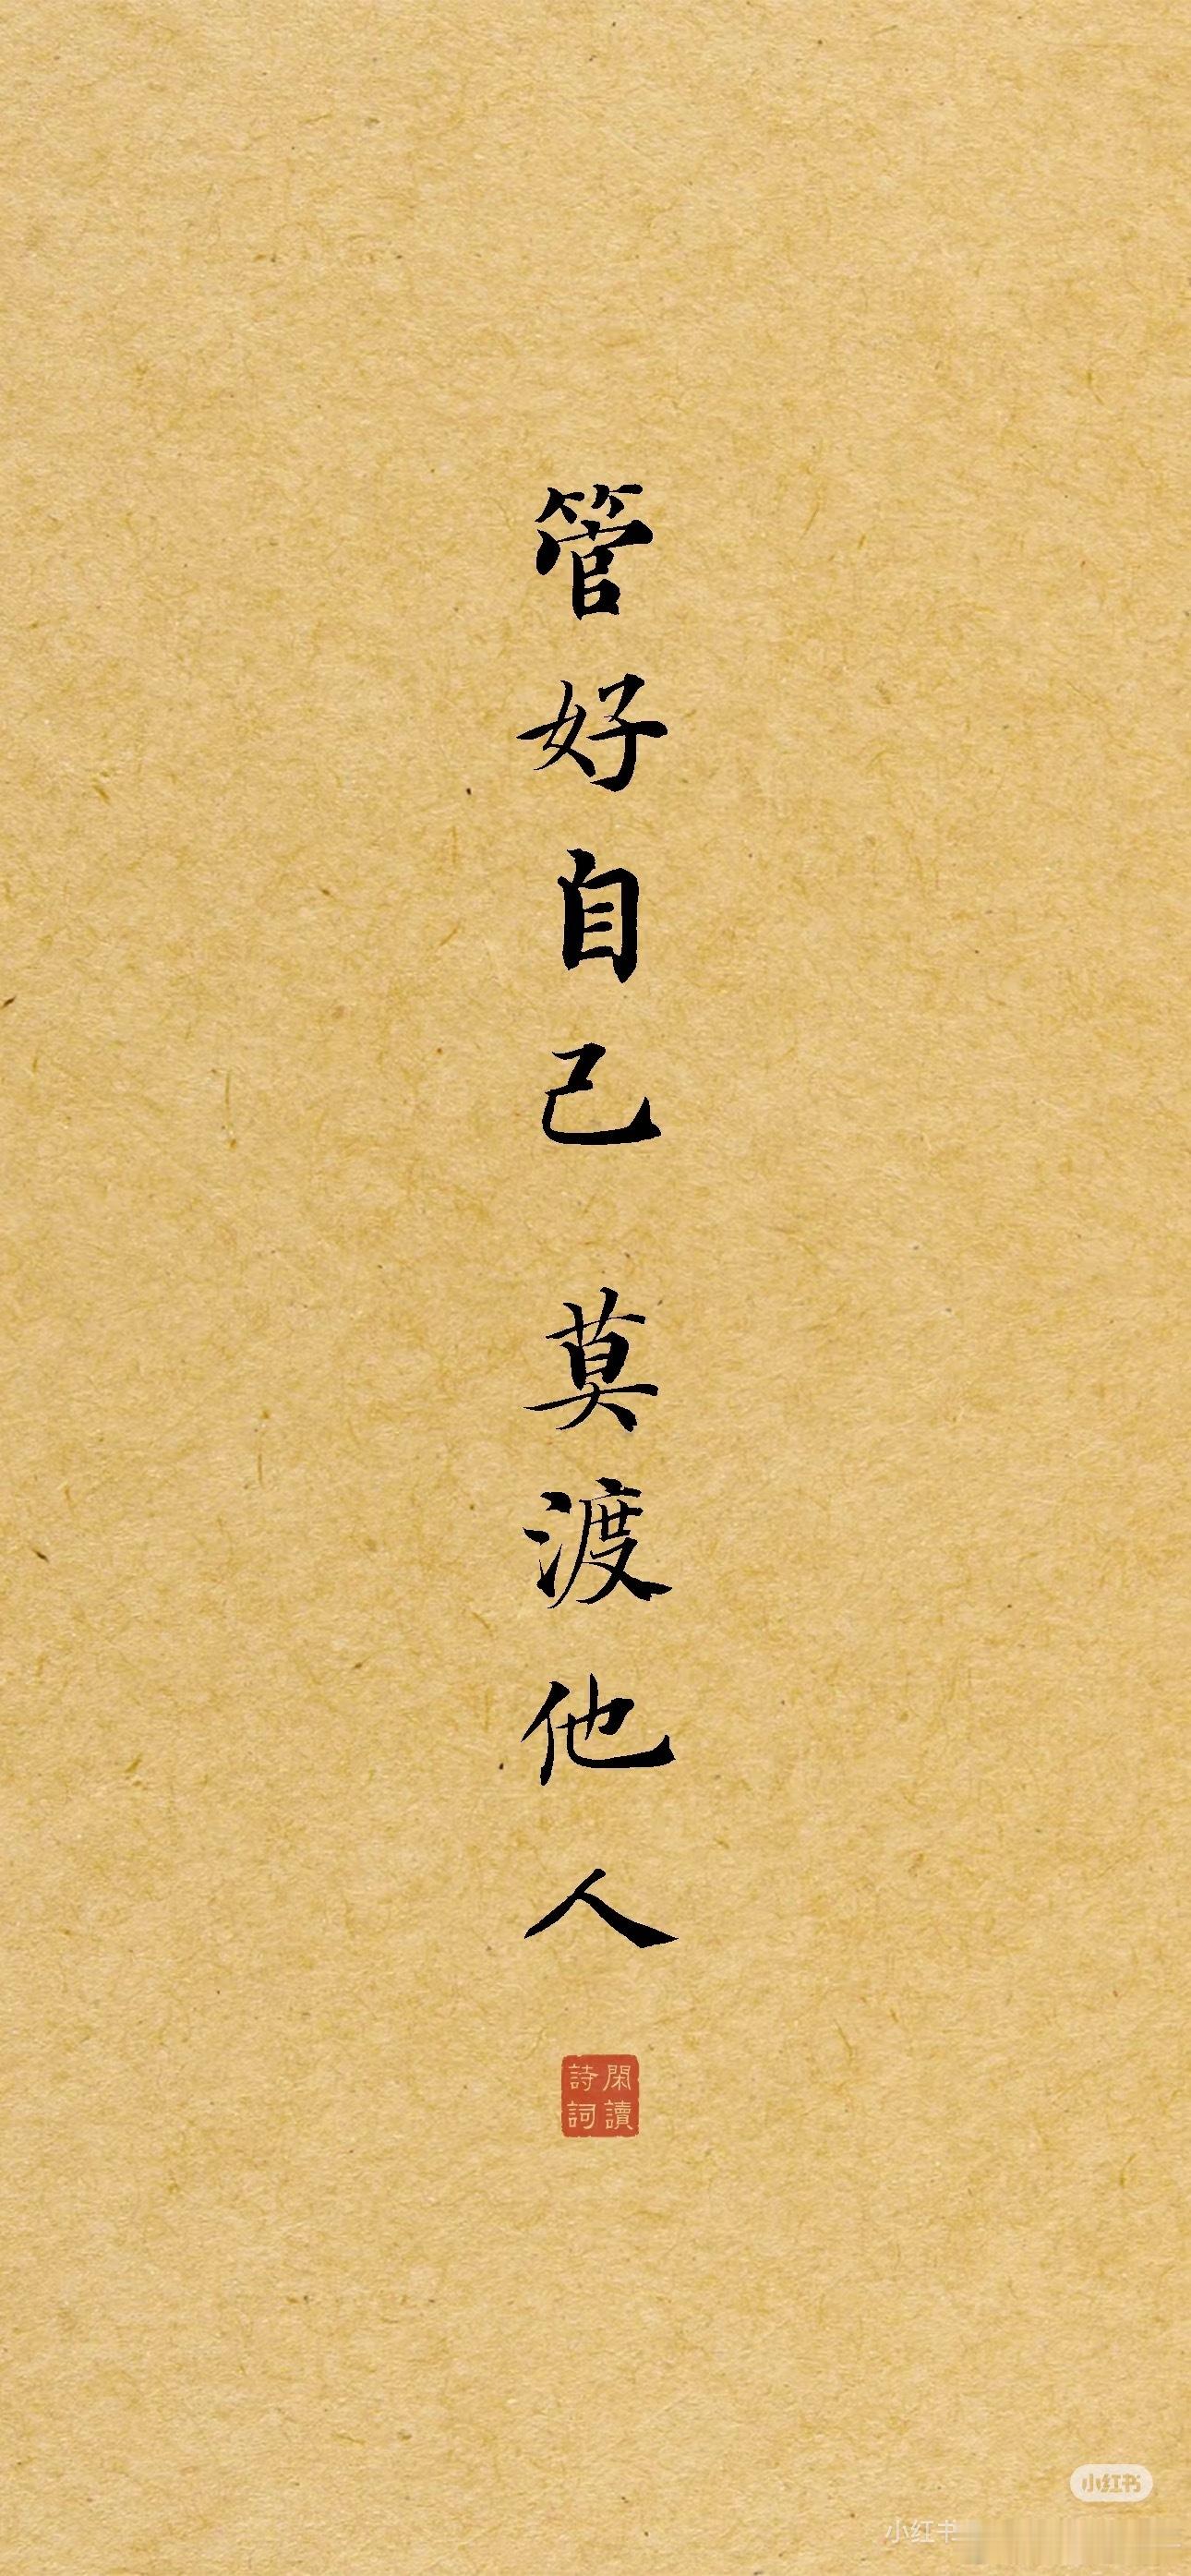 管好自己 莫渡他人
閑讀
詩詞
小红书
小红书